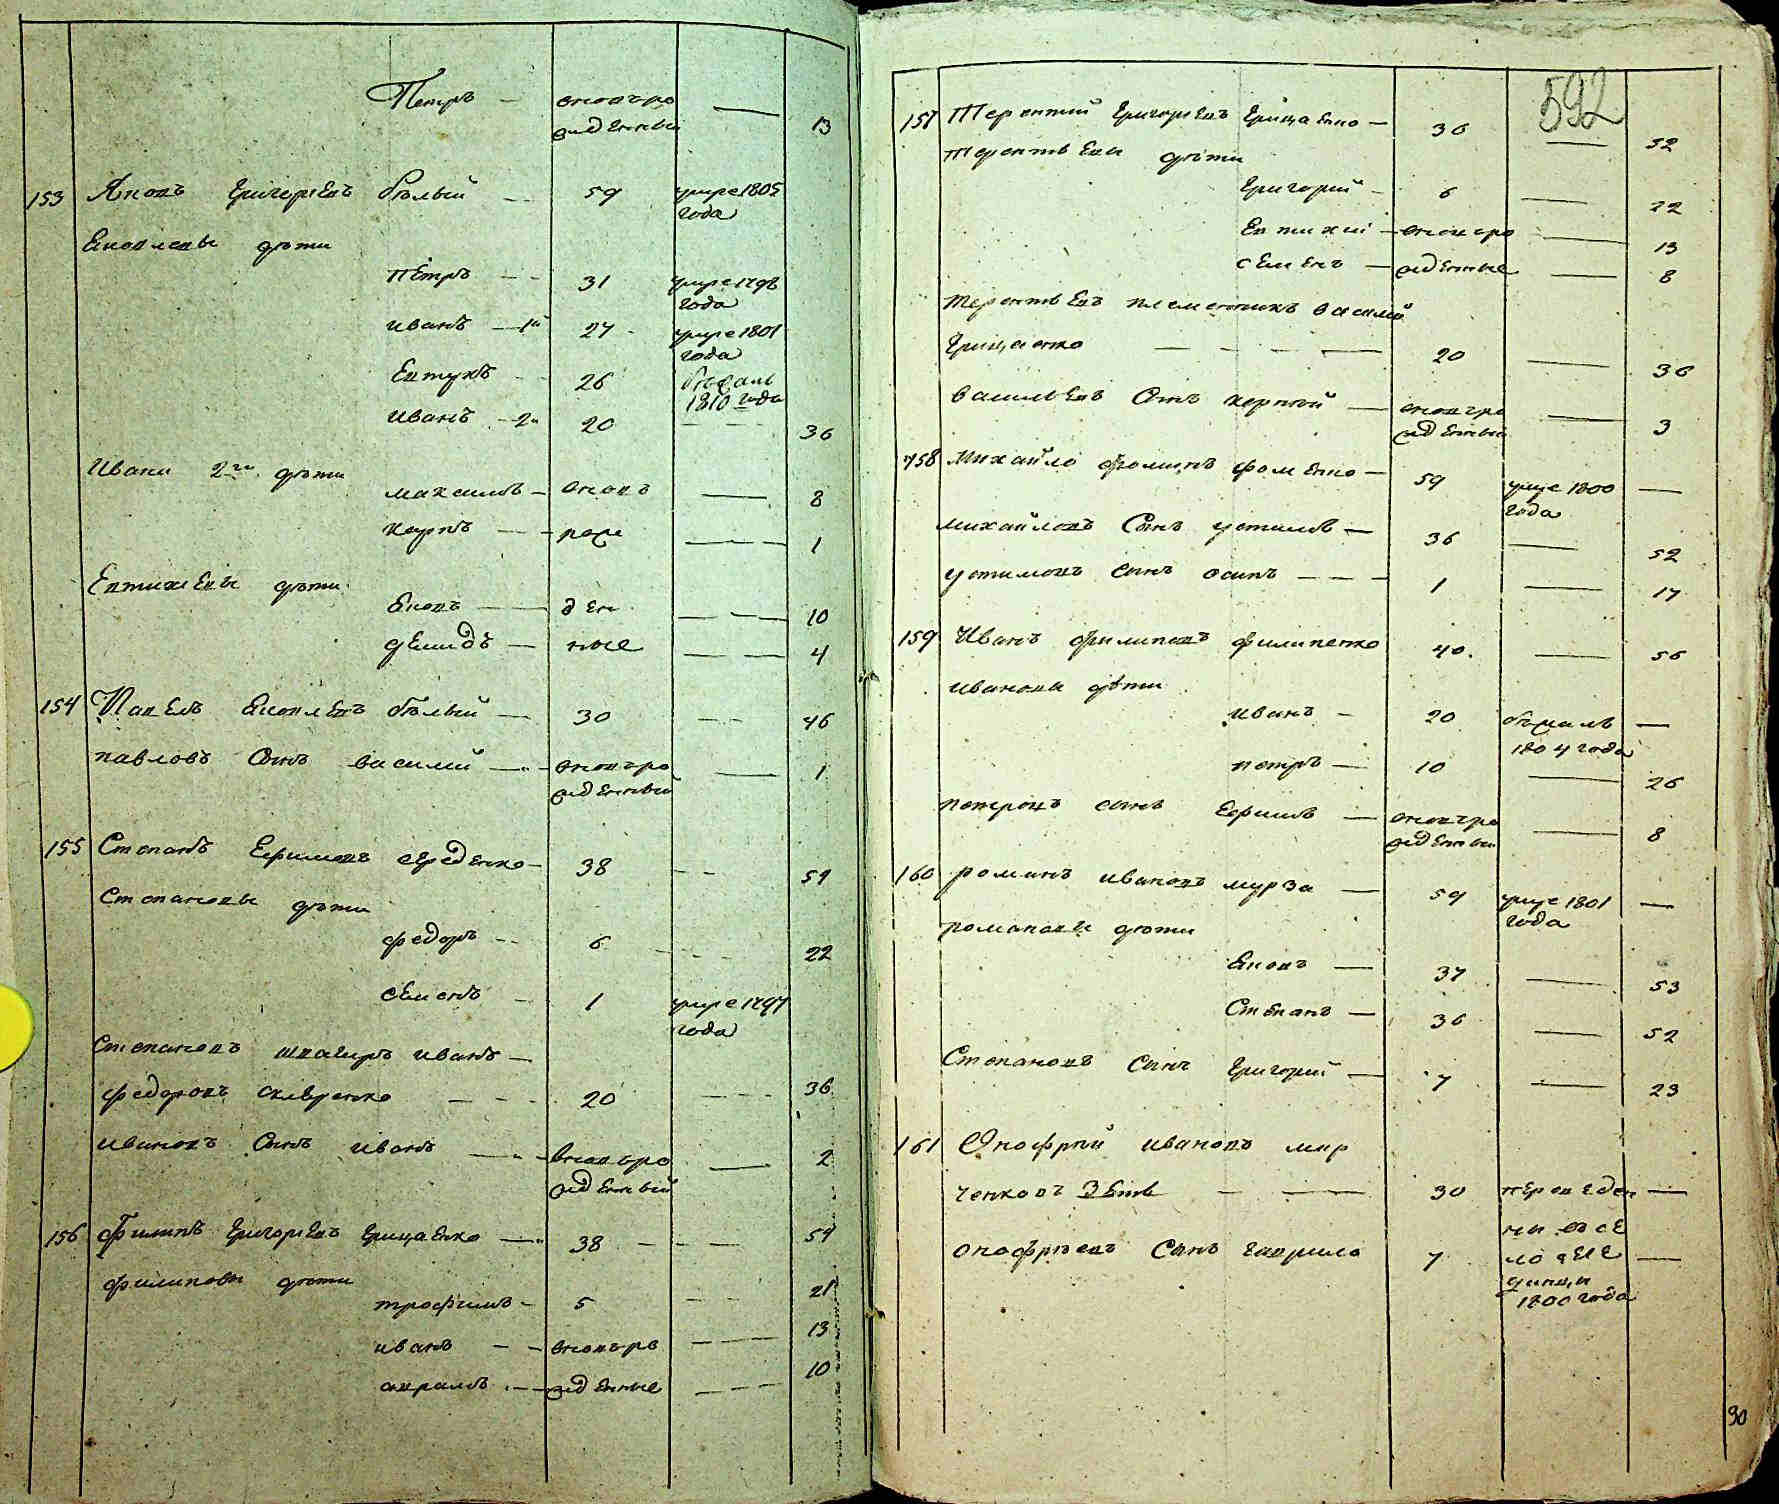 Петръ — вновъро — 13
жденный
153 Яковъ Григорьевъ бѣлый — 59 умре 1805
года
Яковлевы дѣти
Петръ — 31 умре 1798
года
иванъ — 1й 27 умре 1801
года
Евтухъ 26 бѣжалъ
1810 года
иванъ — 2й 20 — 36
Ивана 2го дѣти
максимъ — вновъ — 8
карпъ — роже — 1
Евтихіевы дѣти
Яковъ — ден — 10
демидъ — ные — 4
154 Павелъ Яковлевъ бѣлый — 30 — 46
павловъ сынъ василий — вновъро — 1
жденный
155 Степанъ Ефимовъ середенко — 38 — 54
Степановы дѣти
федоръ — 6 — 22
семенъ — 1 умре 1797
года
степановъ швагиръ иванъ —
федоровъ — 20 — 36
ивановъ сынъ иванъ — вновъро — 2
жденный
156 Филипъ Григорьевъ Грицаенко — 38 — 54
филиповы дѣти
трофимъ — 5 — 21
иванъ — вновъро — 13
аврамъ — жденные — 10
592
157 Терентий Григорьевъ Грицаенко — 36 — 52
терентьевы дѣти
Григорий — 6 — 22
Евтихій — вновъро — 13
семенъ — жденные — 8
терентьевъ племенникъ василий
Грицаенко — 20 — 36
васильевъ сынъ — вновъро — 3
жденный
158 Михайло фоминъ фоменко — 59 умре 1800 —
года
михайловъ сынъ устимъ — 36 — 52
устимовъ сынъ осипъ — 1 — 17
159 Иванъ филиповъ филипенко 40 — 56
ивановы дѣти
иванъ — 20 бѣжалъ —
1804 года
петръ — 10 — 26
петровъ сынъ Ефимъ — вновъро — 8
жденный
160 романъ ивановъ мурза — 59 умре 1801 —
года
романовы дѣти
Яковъ — 37 — 53
Степанъ — 36 — 52
Степановъ сынъ Григорий — 7 — 23
161 Онофрий ивановъ мир
ченковъ Зять — 30 переведен —
ны въ се
онофріевъ сынъ гаврило 7 ло —
1800 года
90